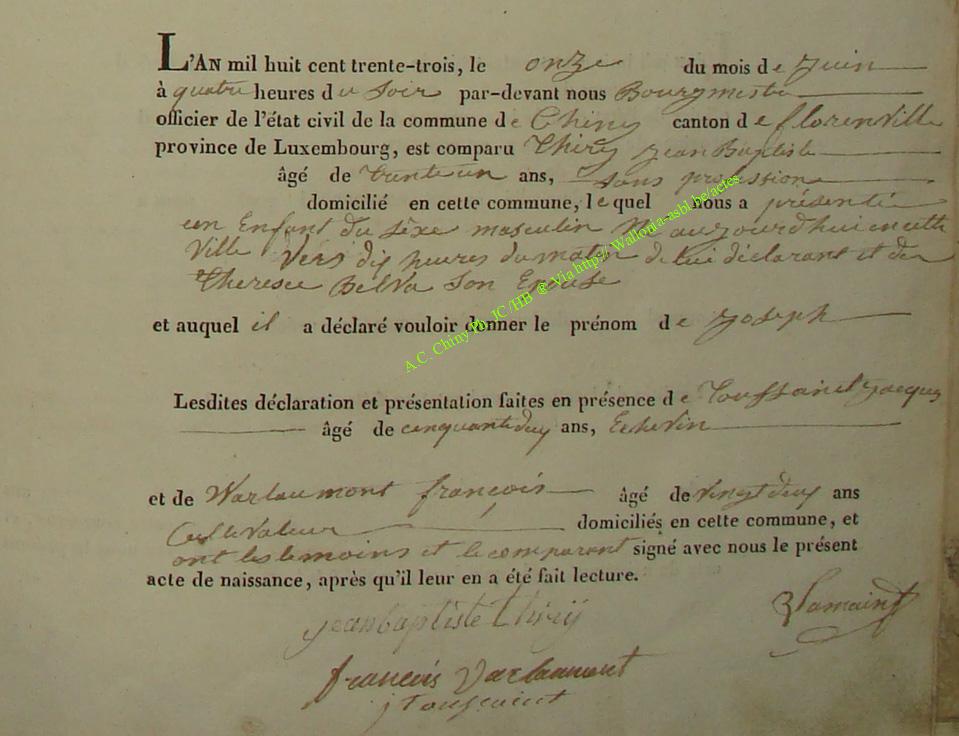 L'AN mil huit cent trente-trois, le onze du mois de Juin
à quatre heures du Soir par-devant nous Bourgmestre
officier de l'état civil de la commune de Chiny canton de florenville
province de Luxembourg, est comparu Thiry Jean Baptiste
âgé de trente un ans, sans profession
domicilié en cette commune, lequel nous a présenté
un Enfant du Sèxe masculin Né aujourd'hui en cette
Ville Vers dix heures du matin de lui déclarant et de
Theresee Belva Son Epouse
et auquel il a déclaré vouloir donner le prénom de Joseph
Lesdites déclaration et présentation faites en présence de Toussaint Jacques
âgé de cinquante deux ans, Echevin
et de Warlaumont françois âgé de vingt deux ans
Cultivateur domiciliés en cette commune, et
ont les temoins et le comparant signé avec nous le présent
acte de naissance, après qu'il leur en a été fait lecture.
jean baptiste thirÿ
françois Varlaumont
j toussaint
A.C. Chiny Ph. JC /HB @ Via http:// Wallonia-asbl.be/actes